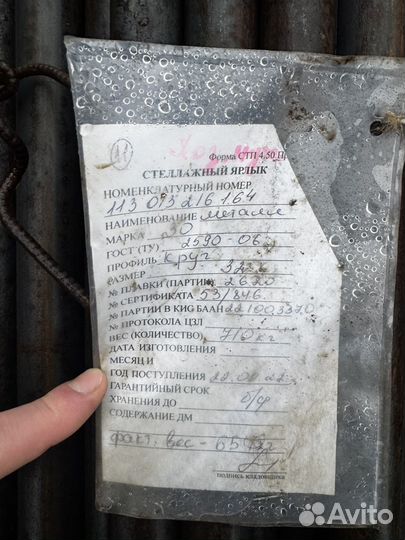 11
Форма СТП 4.50 П
СТЕЛЛАЖНЫЙ ЯРЛЫК
НОМЕНКЛАТУРНЫЙ НОМЕР
113 093 216 164
НАИМЕНОВАНИЕ металл
МАРКА 30
ГОСТ (ТУ) 2590-06
ПРОФИЛЬ круг
РАЗМЕР 32
№ ПЛАВКИ (ПАРТИИ) 2620
№ СЕРТИФИКАТА 53/846
№ ПАРТИИ В КИС БААН 221003320
№ ПРОТОКОЛА ЦЗЛ
ВЕС (КОЛИЧЕСТВО) 710 кг
ДАТА ИЗГОТОВЛЕНИЯ
МЕСЯЦ И
ГОД ПОСТУПЛЕНИЯ
ГАРАНТИЙНЫЙ СРОК
ХРАНЕНИЯ ДО б/г
СОДЕРЖАНИЕ ДМ
факт. вес -
подпись кладовщика
Avito